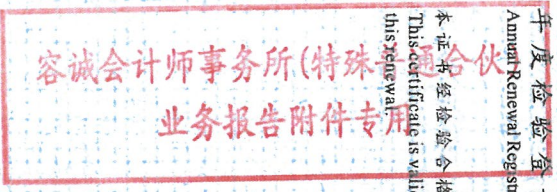 容诚会计师事务所(特殊普通合伙
业务报告附件专用
年度检验登
Annual Renewal Regist
本证书经检验合格
This certificate is vali
this renewal.